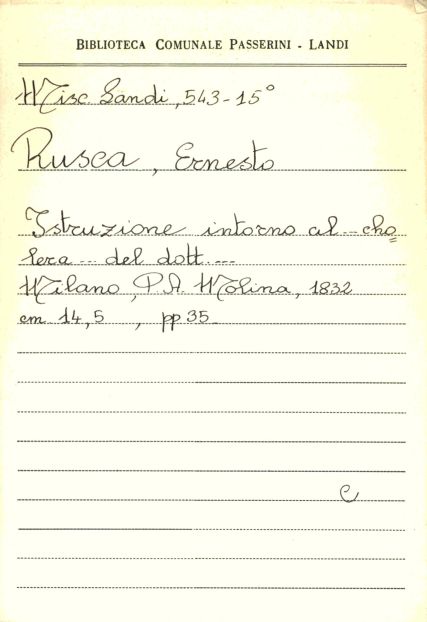 BIBLIOTECA COMUNALE PASSERINI - LANDI
Misc. Landi, 543-15°
Rusca, Ernesto
Istruzione intorno al --- cho=
lera --- del dott. ---
Milano, P. A. Molina, 1832
cm 14,5 , pp 35
C